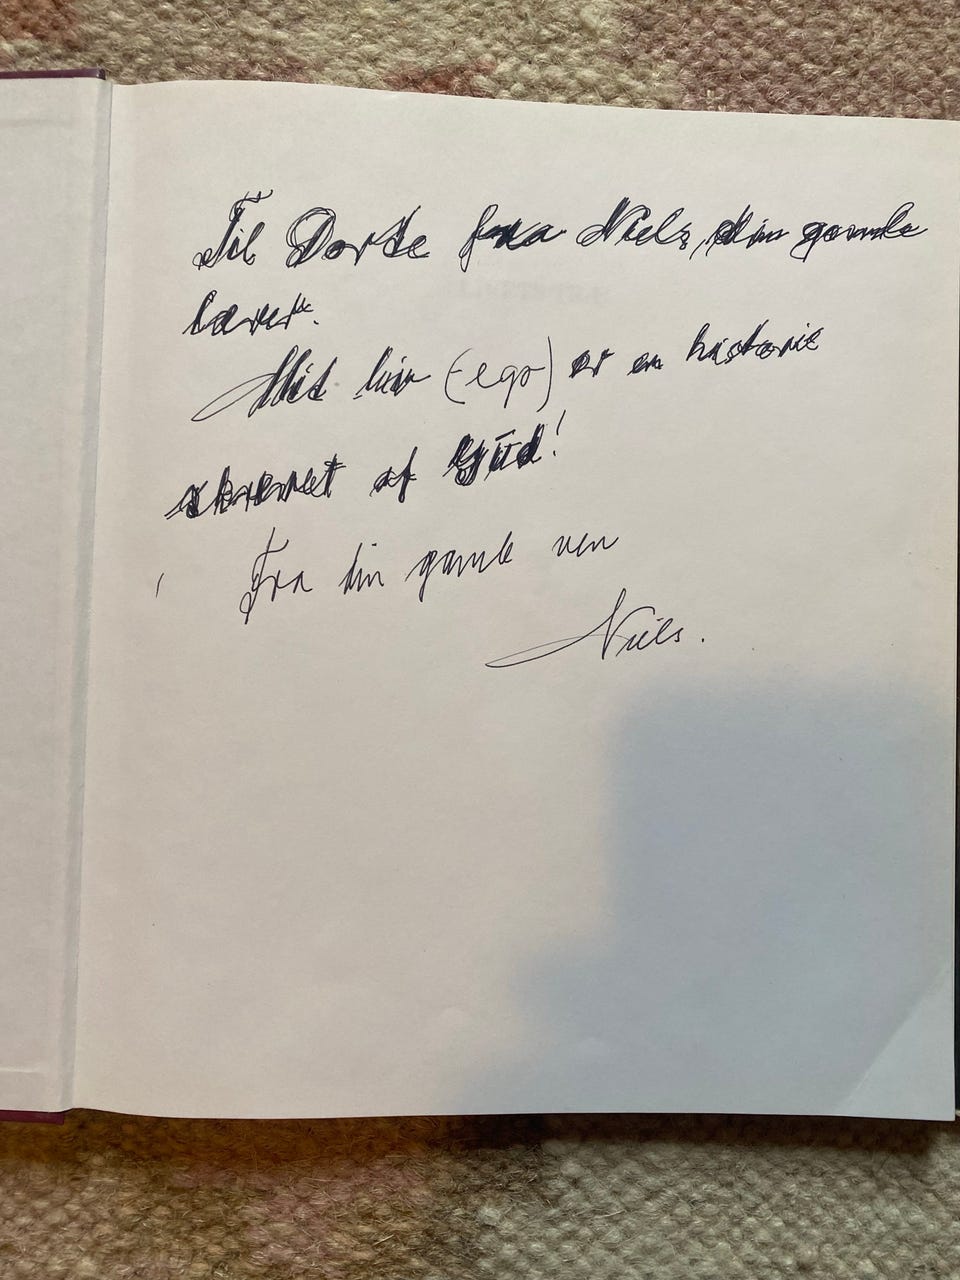 Til Dorte fra Niels, din gamle
lærer.
Mit liv (-ego) er en historie
skrevet af Gud!
Fra din gamle ven
Niels.